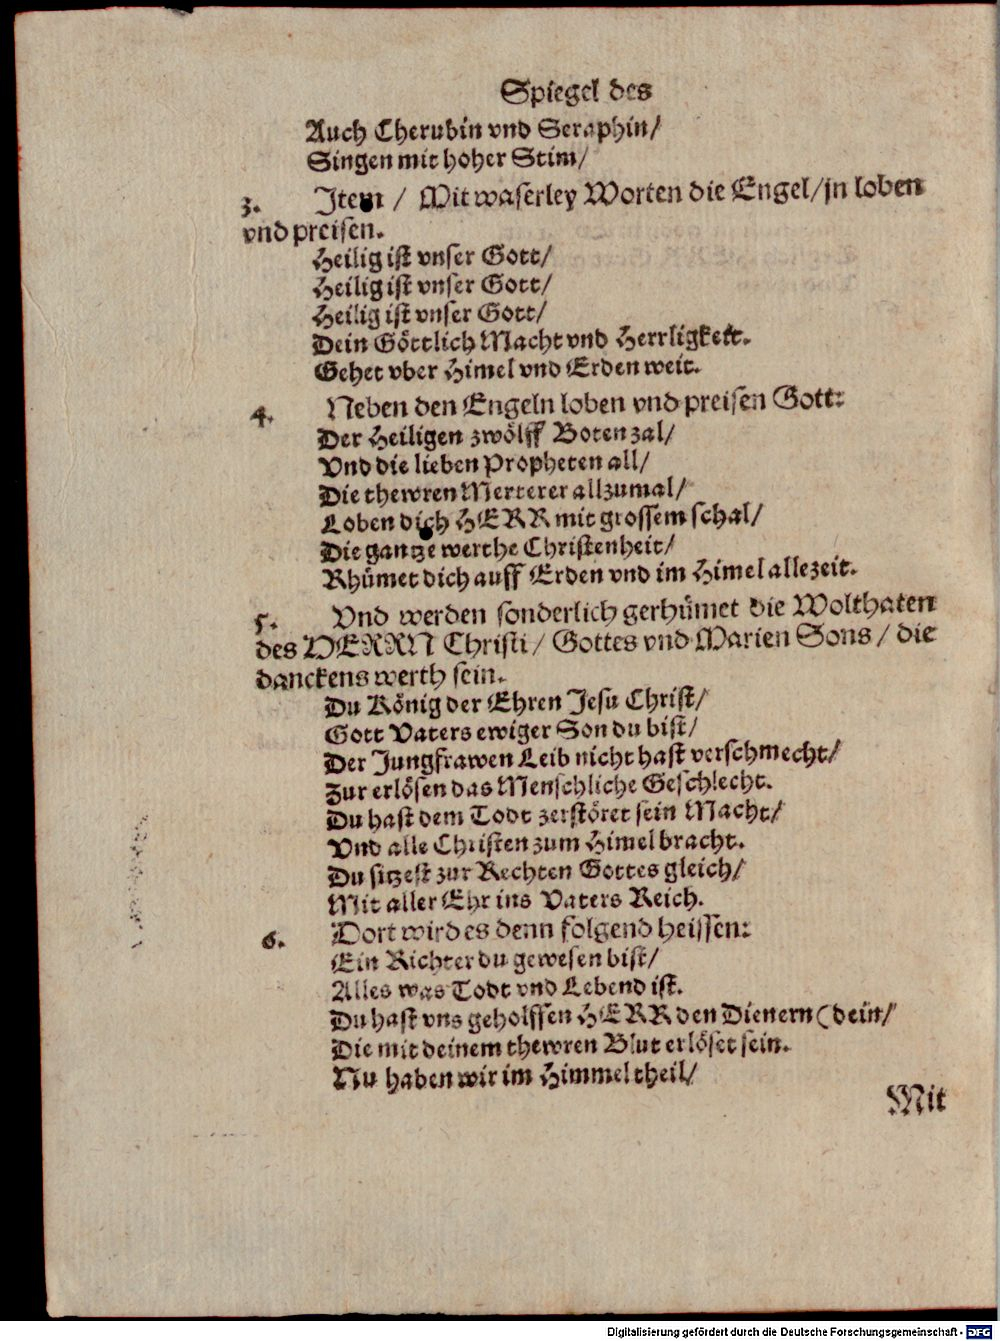 Spiegel des
Auch Cherubin vnd Seraphin/
Singen mit hoher Stim/
3. Item / Mit waserley Worten die Engel/jn loben
vnd preisen.
Heilig ist vnser Gott/
Heilig ist vnser Gott/
Heilig ist vnser Gott/
Dein Göttlich Macht vnd Herrligkeit.
Gehet vber Himel vnd Erden weit.
4. Neben den Engeln loben vnd preisen Gott:
Der Heiligen zwölff Boten zal/
Vnd die lieben Propheten all/
Die thewren Merterer allzumal/
Loben dich HERR mit grossem schal/
Die gantze werthe Christenheit/
Rhümet dich auff Erden vnd im Himel allezeit.
5. Vnd werden sonderlich gerhümet die Wolthaten
des HERRN Christi / Gottes vnd Marien Sons / die
danckens werth sein.
Du König der Ehren Jesu Christ/
Gott Vaters ewiger Son du bist/
Der Jungfrawen Leib nicht hast verschmecht/
Zur erlösen das Menschliche Geschlecht.
Du hast dem Todt zerstöret sein Macht/
Vnd alle Christen zum Himel bracht.
Du sitzest zur Rechten Gottes gleich/
Mit aller Ehr ins Vaters Reich.
6. Dort wird es denn folgend heissen:
Ein Richter du gewesen bist/
Alles was Todt vnd Lebend ist.
Du hast vns geholffen HERR den Dienern (dein/
Die mit deinem thewren Blut erlöset sein.
Nu haben wir im Himmel theil/
Mit
Digitalisierung gefördert durch die Deutsche Forschungsgemeinschaft - DFG